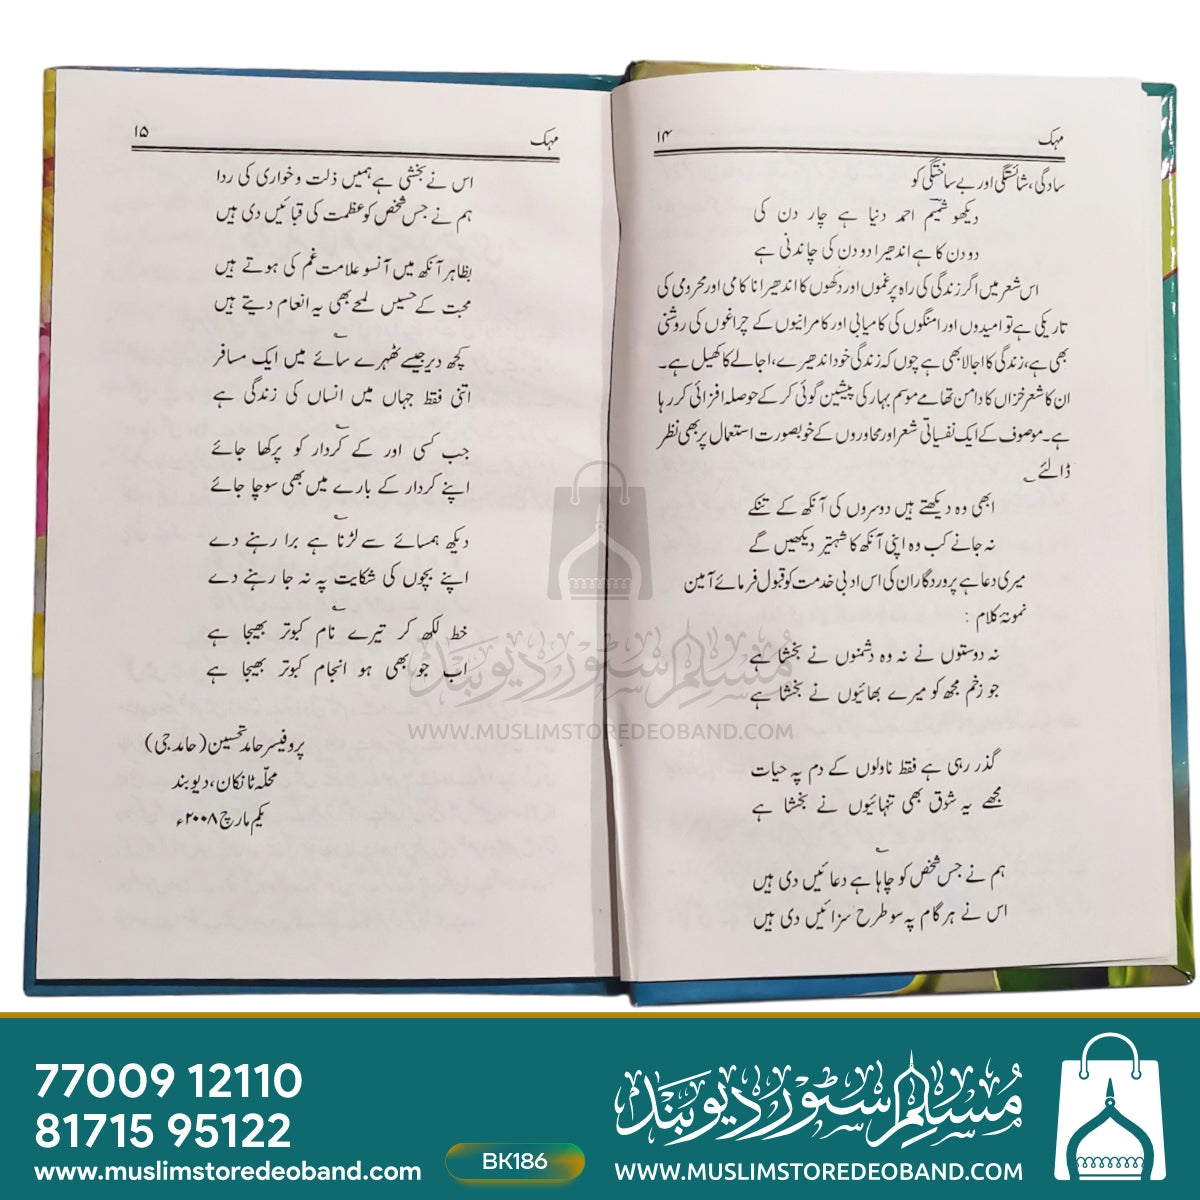 مہک ۱۴
سادگی، شائستگی اور بے ساختگی کو
دیکھو شمیم احمد دنیا ہے چار دن کی
دو دن کا ہے اندھیرا دو دن کی چاندنی ہے
اس شعر میں اگر زندگی کی راہ پر غموں اور دکھوں کا اندھیرا ناکامی اور محرومی کی
تاریکی ہے تو امیدوں اور امنگوں کی کامیابی اور کامرانیوں کے چراغوں کی روشنی
بھی ہے، زندگی کا اجالا بھی ہے چوں کہ زندگی خود اندھیرے، اجالے کا کھیل ہے۔
ان کا شعر خزاں کا دامن تھامے موسم بہار کی پیشین گوئی کر کے حوصلہ افزائی کر رہا
ہے۔ موصوف کے ایک نفسیاتی شعر اور محاوروں کے خوبصورت استعمال پر بھی نظر
ڈالئے ؎
ابھی وہ دیکھتے ہیں دوسروں کی آنکھ کے تنکے
نہ جانے کب وہ اپنی آنکھ کا شہتیر دیکھیں گے
میری دعا ہے پروردگار ان کی اس ادبی خدمت کو قبول فرمائے آمین
نمونۂ کلام :
نہ دوستوں نے نہ وہ دشمنوں نے بخشا ہے
جو زخم مجھ کو میرے بھائیوں نے بخشا ہے
گذر رہی ہے فقط ناولوں کے دم پہ حیات
مجھے یہ شوق بھی تنہائیوں نے بخشا ہے
؎
ہم نے جس شخص کو چاہا ہے دعائیں دی ہیں
اس نے ہر گام پہ سو طرح سزائیں دی ہیں
مہک ۱۵
اس نے بخشی ہے ہمیں ذلت و خواری کی ردا
ہم نے جس شخص کو عظمت کی قبائیں دی ہیں
بظاہر آنکھ میں آنسو علامت غم کی ہوتے ہیں
محبت کے حسیں لمحے بھی یہ انعام دیتے ہیں
؎
کچھ دیر جیسے ٹھہرے سائے میں ایک مسافر
اتنی فقط جہاں میں انساں کی زندگی ہے
؎
جب کسی اور کے کردار کو پرکھا جائے
اپنے کردار کے بارے میں بھی سوچا جائے
؎
دیکھ ہمسائے سے لڑنا ہے برا رہنے دے
اپنے بچوں کی شکایت پہ نہ جا رہنے دے
؎
خط لکھ کر تیرے نام کبوتر بھیجا ہے
اب جو بھی ہو انجام کبوتر بھیجا ہے
پروفیسر حامد تحسین (حامد جی)
محلّہ ٹانکان، دیوبند
یکم مارچ ۲۰۰۸ء
مسلم سٹور دیوبند
WWW.MUSLIMSTOREDEOBAND.COM
77009 12110
81715 95122
www.muslimstoredeoband.com
BK186
مسلم سٹور دیوبند
WWW.MUSLIMSTOREDEOBAND.COM